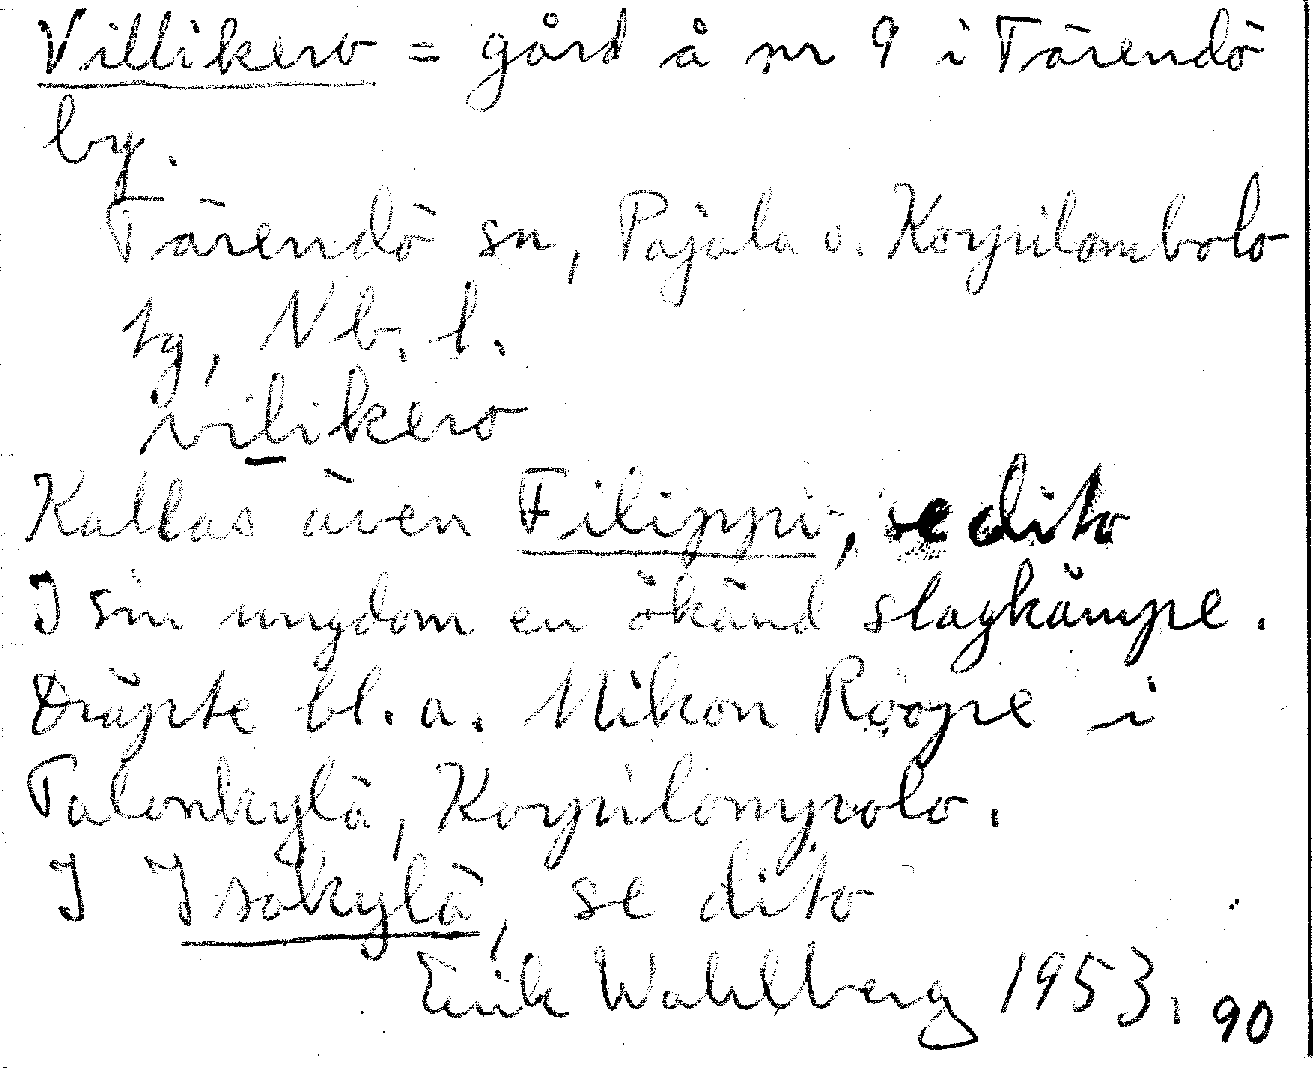 Villikero = gård å nr 9 i Tärendö
by.
Tärendö sn, Pajala o. Korpilombolo
tg, Nb. l.
vilikero
Kallas även Filippi, se dito
I sin ungdom en ökänd slagkämpe.
Dräpte bl. a. Nikon Rööpe i
Palonkylä, Korpilompolo.
I Isokylä, se dito
Erik Wahlberg 1953. 90